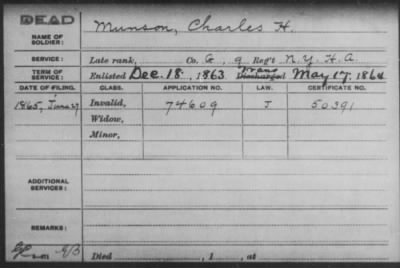 DEAD
NAME OF SOLDIER: Munson, Charles H.
SERVICE: Late rank, Co. G, 9 Reg't N.Y. H.A.
TERM OF SERVICE: Enlisted Dec. 18, 1863 Trans Discharged May 17, 1864
DATE OF FILING. CLASS. APPLICATION NO. LAW. CERTIFICATE NO.
1865, June 27 Invalid, 74609 J 50391
Widow,
Minor,
ADDITIONAL SERVICES:
REMARKS:
Died , 1 , at